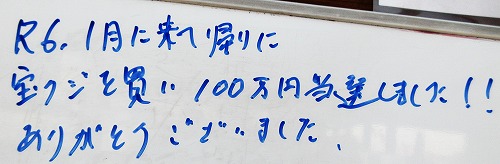 R6.1月に来て帰りに
宝クジを買い100万円当選しました!!
ありがとうございました.